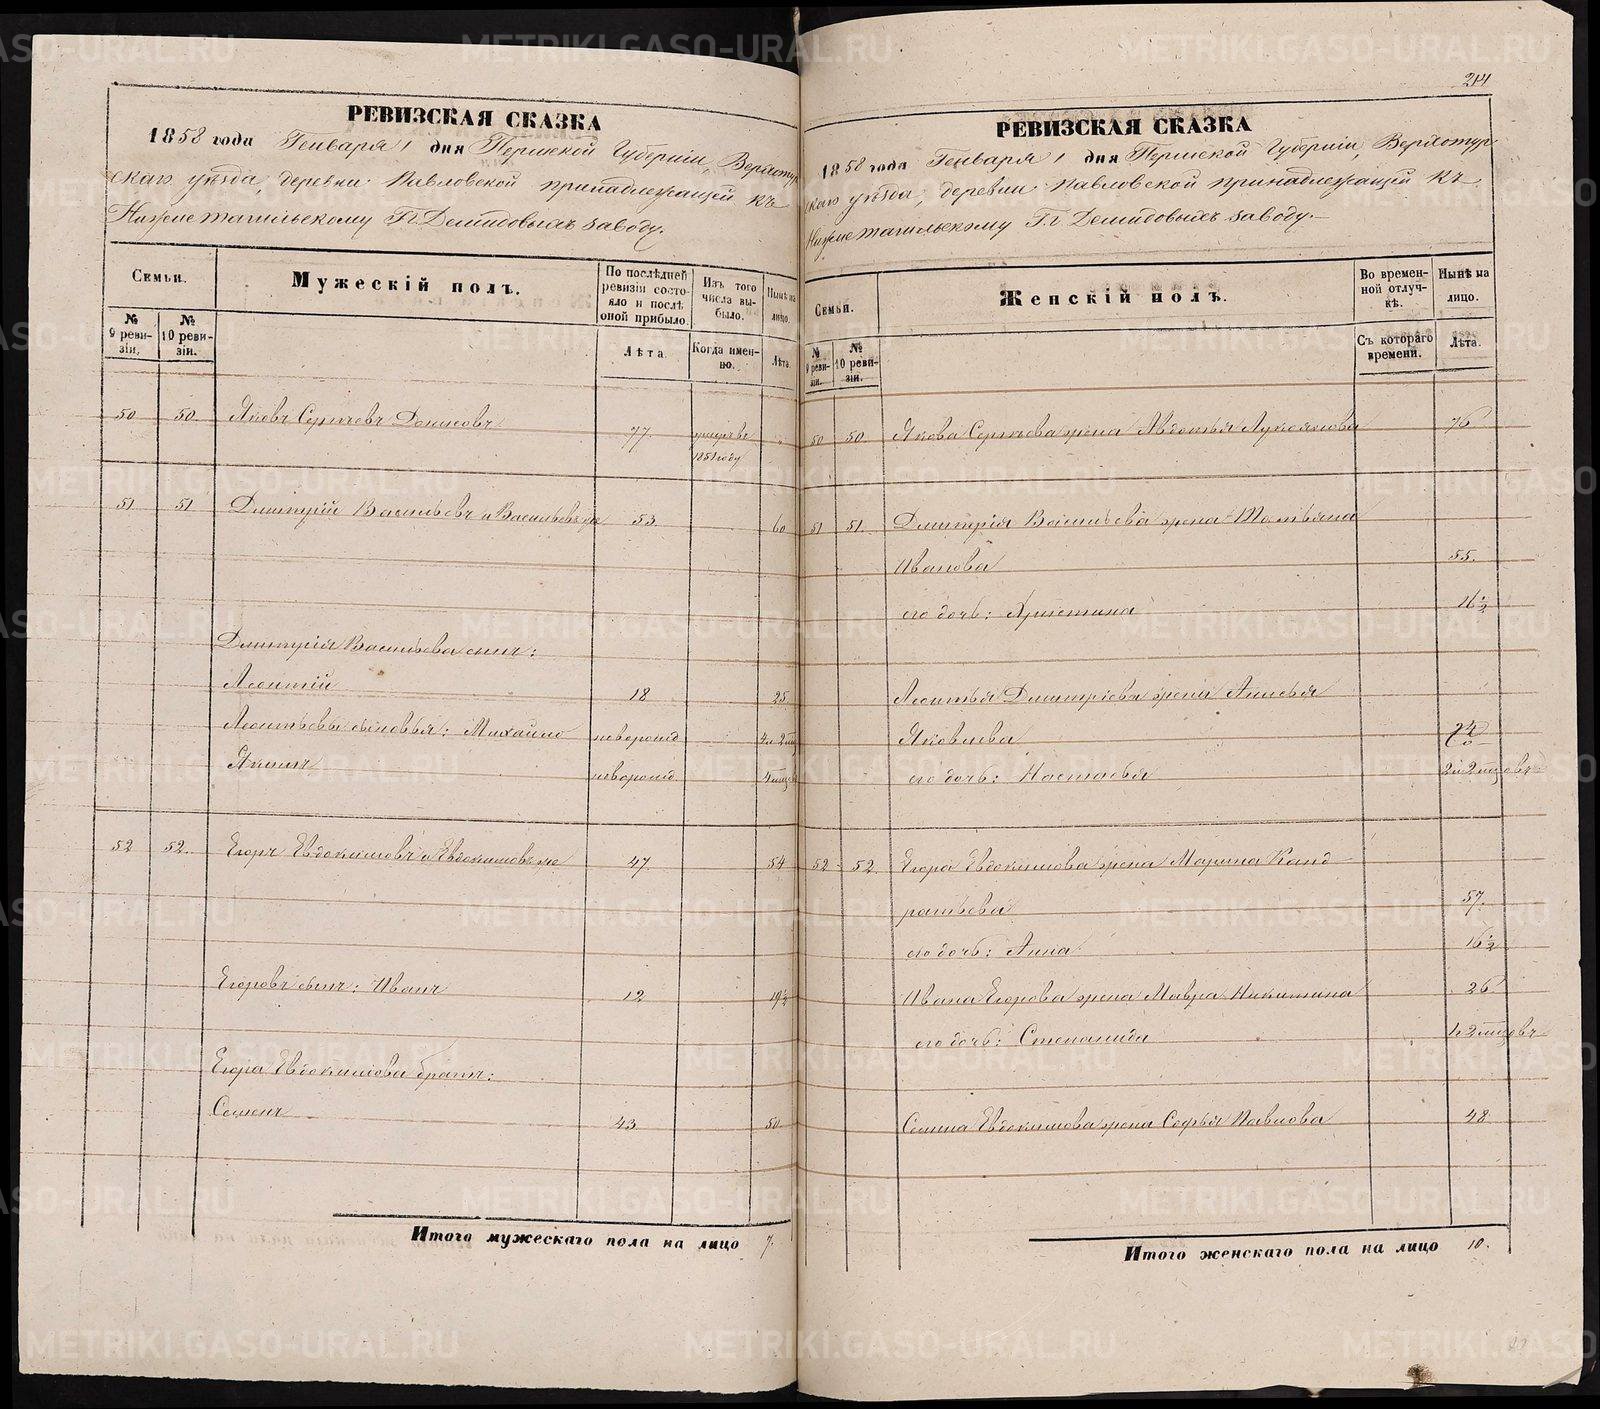 РЕВИЗСКАЯ СКАЗКА
1858 года Генваря 1 дня Пермской Губерніи, Верхотур
скаго уѣзда, деревни Павловской принадлежащей къ
Нижнетагильскому Г.г. Демидовыхъ заводу.
Семьи.
Мужескій полъ.
По послѣдней ревизіи состояло и послѣ оной прибыло.
Изъ того числа выбыло.
Нынѣ на лицо.
№ 9 ревизіи.
№ 10 ревизіи.
Лѣта.
Когда именно.
Лѣта.
50 50. Яковъ Сергѣевъ Денисовъ 77. умеръ въ
1851 году
51 51 Дмитрій Васильевъ Васильевъ же 53. 60
Дмитрія Васильева сынъ:
Леонтій 18 25.
Леонтьевы сыновья: Михаило новорожд 4 и 2 мѣ
Якимъ новорожд. 4 мѣся
52 52. Егоръ Евдокимовъ Евдокимовъ же 47. 54
Егоровъ сынъ: Иванъ 12 19½
Егора Евдокимова братъ:
Семенъ 43 50.
Итого мужескаго пола на лицо 7.
214
РЕВИЗСКАЯ СКАЗКА
1858 года Генваря 1 дня Пермской Губерніи, Верхотур
скаго уѣзда, деревни Павловской принадлежащей къ
Нижнетагильскому Г.г. Демидовыхъ заводу.
Семьи.
Женскій полъ.
Во временной отлучкѣ.
Нынѣ на лицо.
№ 9 ревизіи.
№ 10 ревизіи.
Съ котораго времени.
Лѣта.
50 50. Якова Сергѣева жена Авдотья Лукоянова 76
51 51. Дмитрія Васильева жена Татьяна
Иванова 55.
его дочь: Христина 16½
Леонтья Дмитріева жена Анисья
Яковлева
его дочь: Настасья 2 и 2 мѣсяцовъ
52 52. Егора Евдокимова жена Марина Канд
ратьева 57.
его дочь: Анна 16½
Ивана Егорова жена Мавра Никитина 26
его дочь: Степанида 2 мѣсяцовъ
Семена Евдокимова жена Софья Павлова 48
Итого женскаго пола на лицо 10.
METRIKI.GASO-URAL.RU